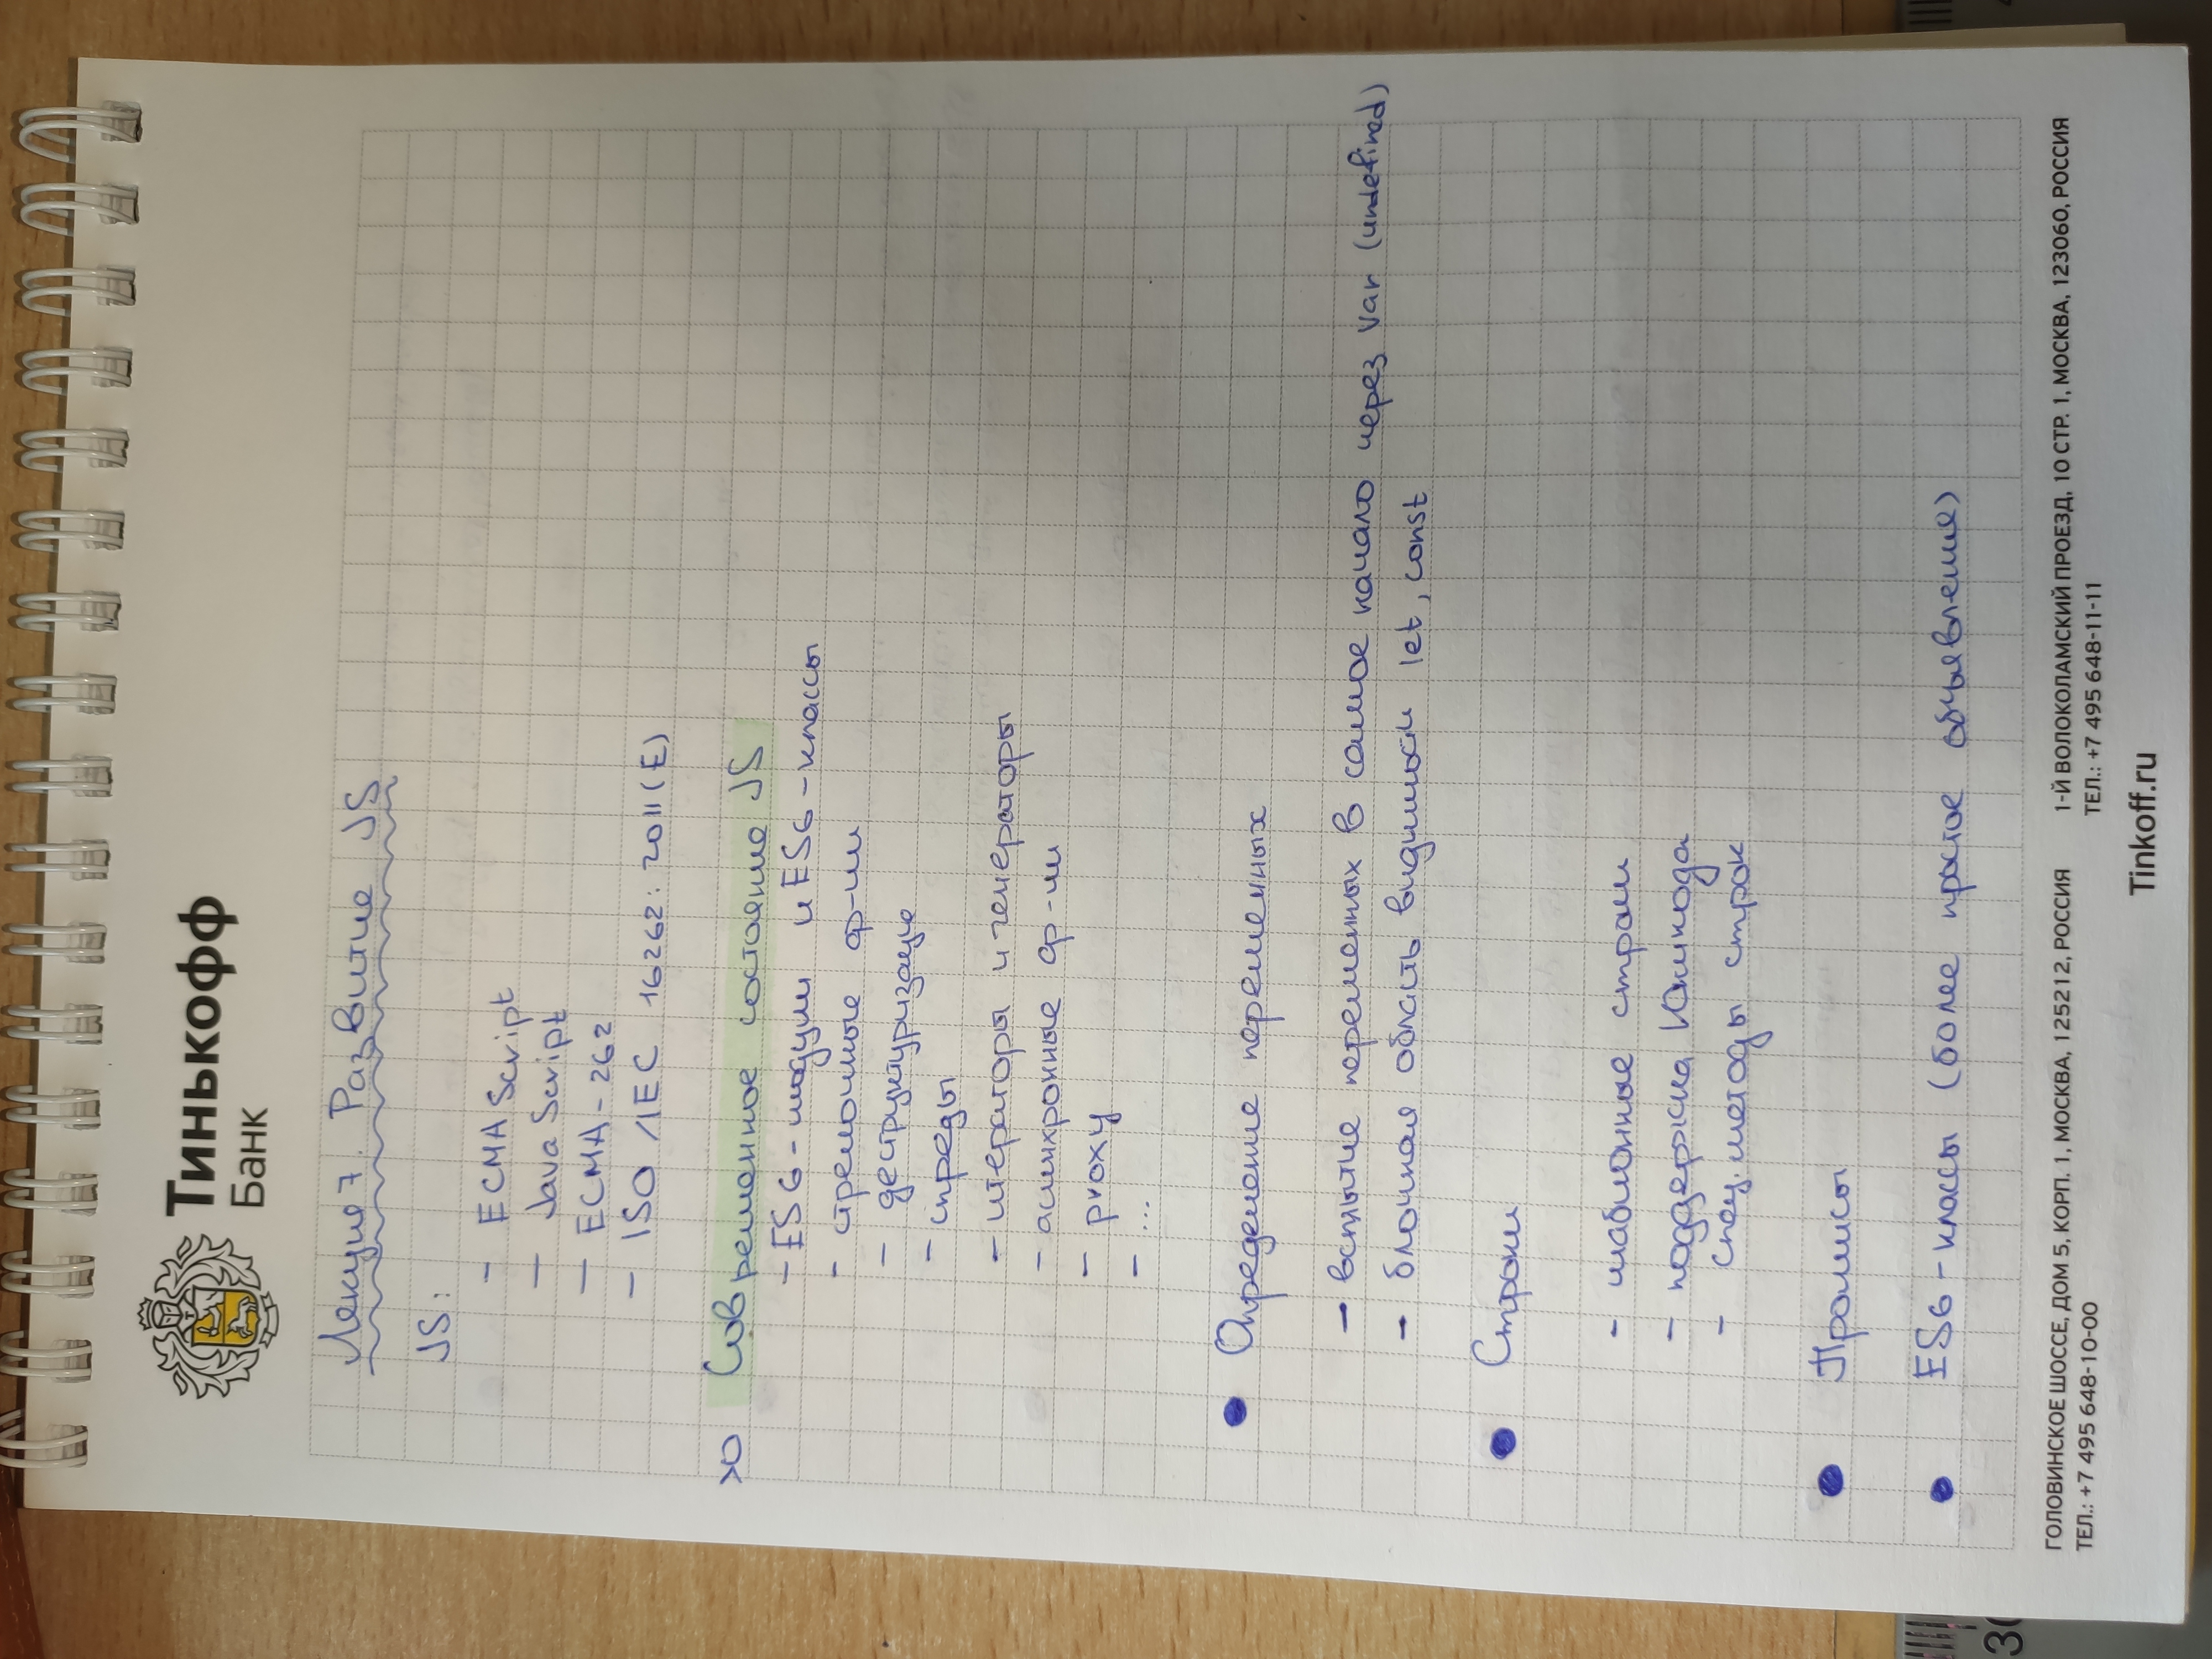 Тинькофф
Банк
Лекция 7. Развитие JS
JS:
- ECMA Script
- Java Script
- ECMA - 262
- ISO /IEC 16262: 2011(E)
Современное состояние JS
- ES6 - модули и ES6 - классы
- стрелочные ф-ии
- деструктуризация
- спреды
- итераторы и генераторы
- асинхронные ф-ии
- proxy
- ...
● Определение переменных
- всплытие переменных в самое начало через var (undefined)
- блочная область видимости let, const
● Строки
- шаблонные строки
- поддержка Юникода
- спец. методы строк
● Промисы
● ES6 - классы (более простое объявление)
ГОЛОВИНСКОЕ ШОССЕ, ДОМ 5, КОРП. 1, МОСКВА, 125212, РОССИЯ
ТЕЛ.: +7 495 648-10-00
1-Й ВОЛОКОЛАМСКИЙ ПРОЕЗД, 10 СТР. 1, МОСКВА, 123060, РОССИЯ
ТЕЛ.: +7 495 648-11-11
Tinkoff.ru